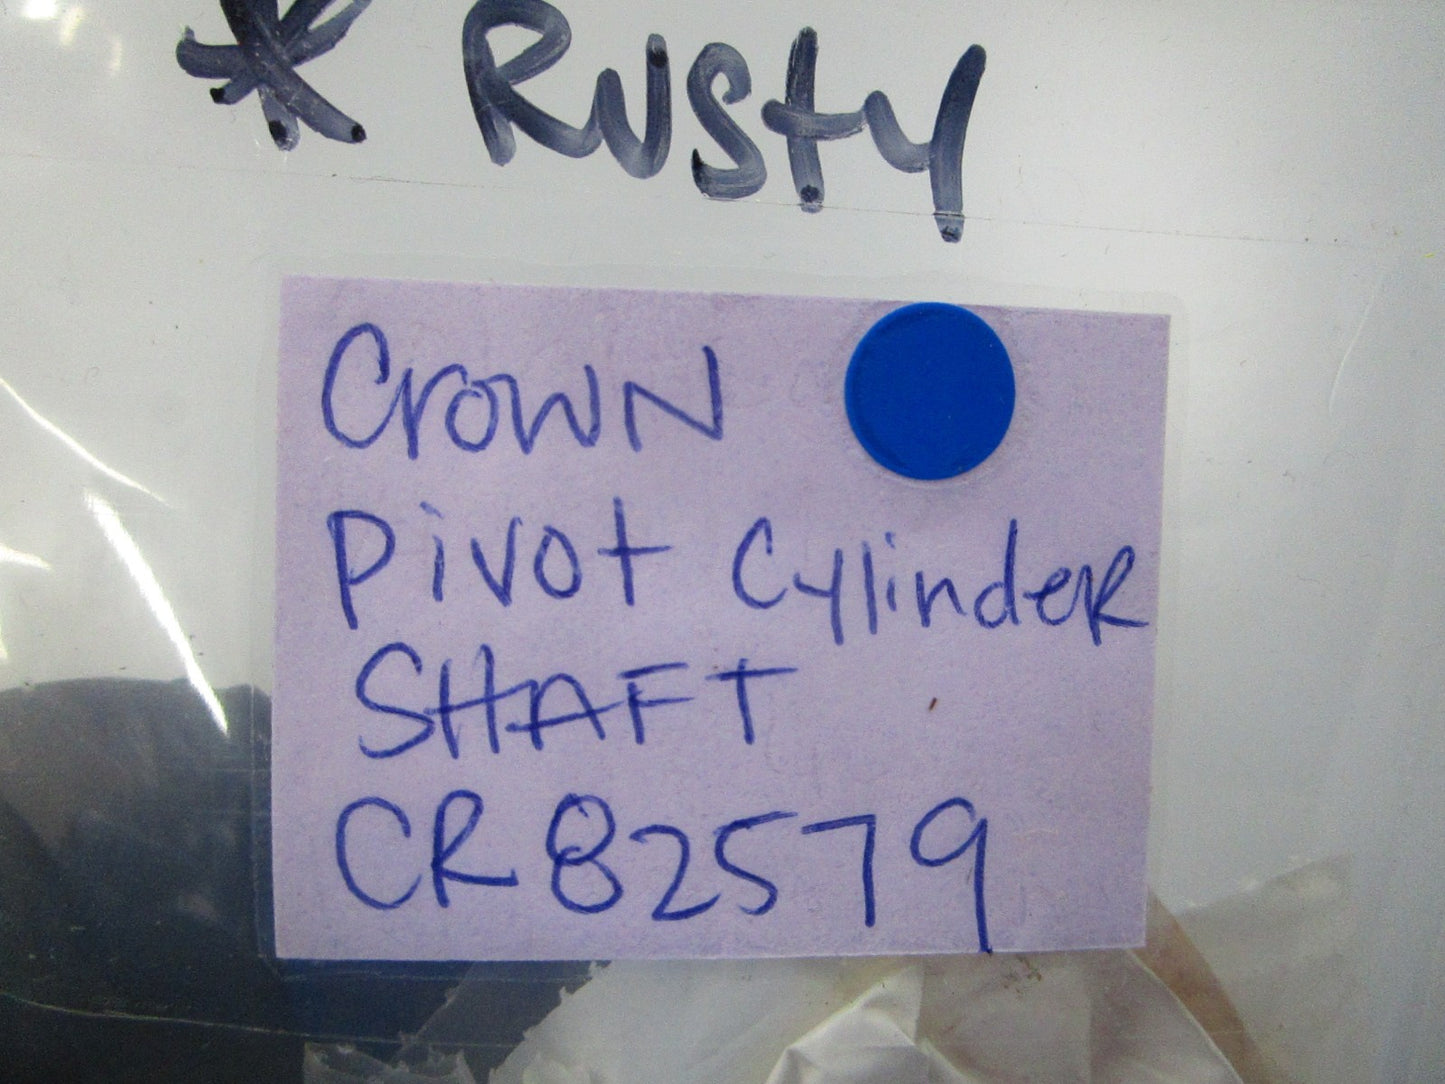 * Rusty
Crown
Pivot Cylinder
SHAFT
CR82579